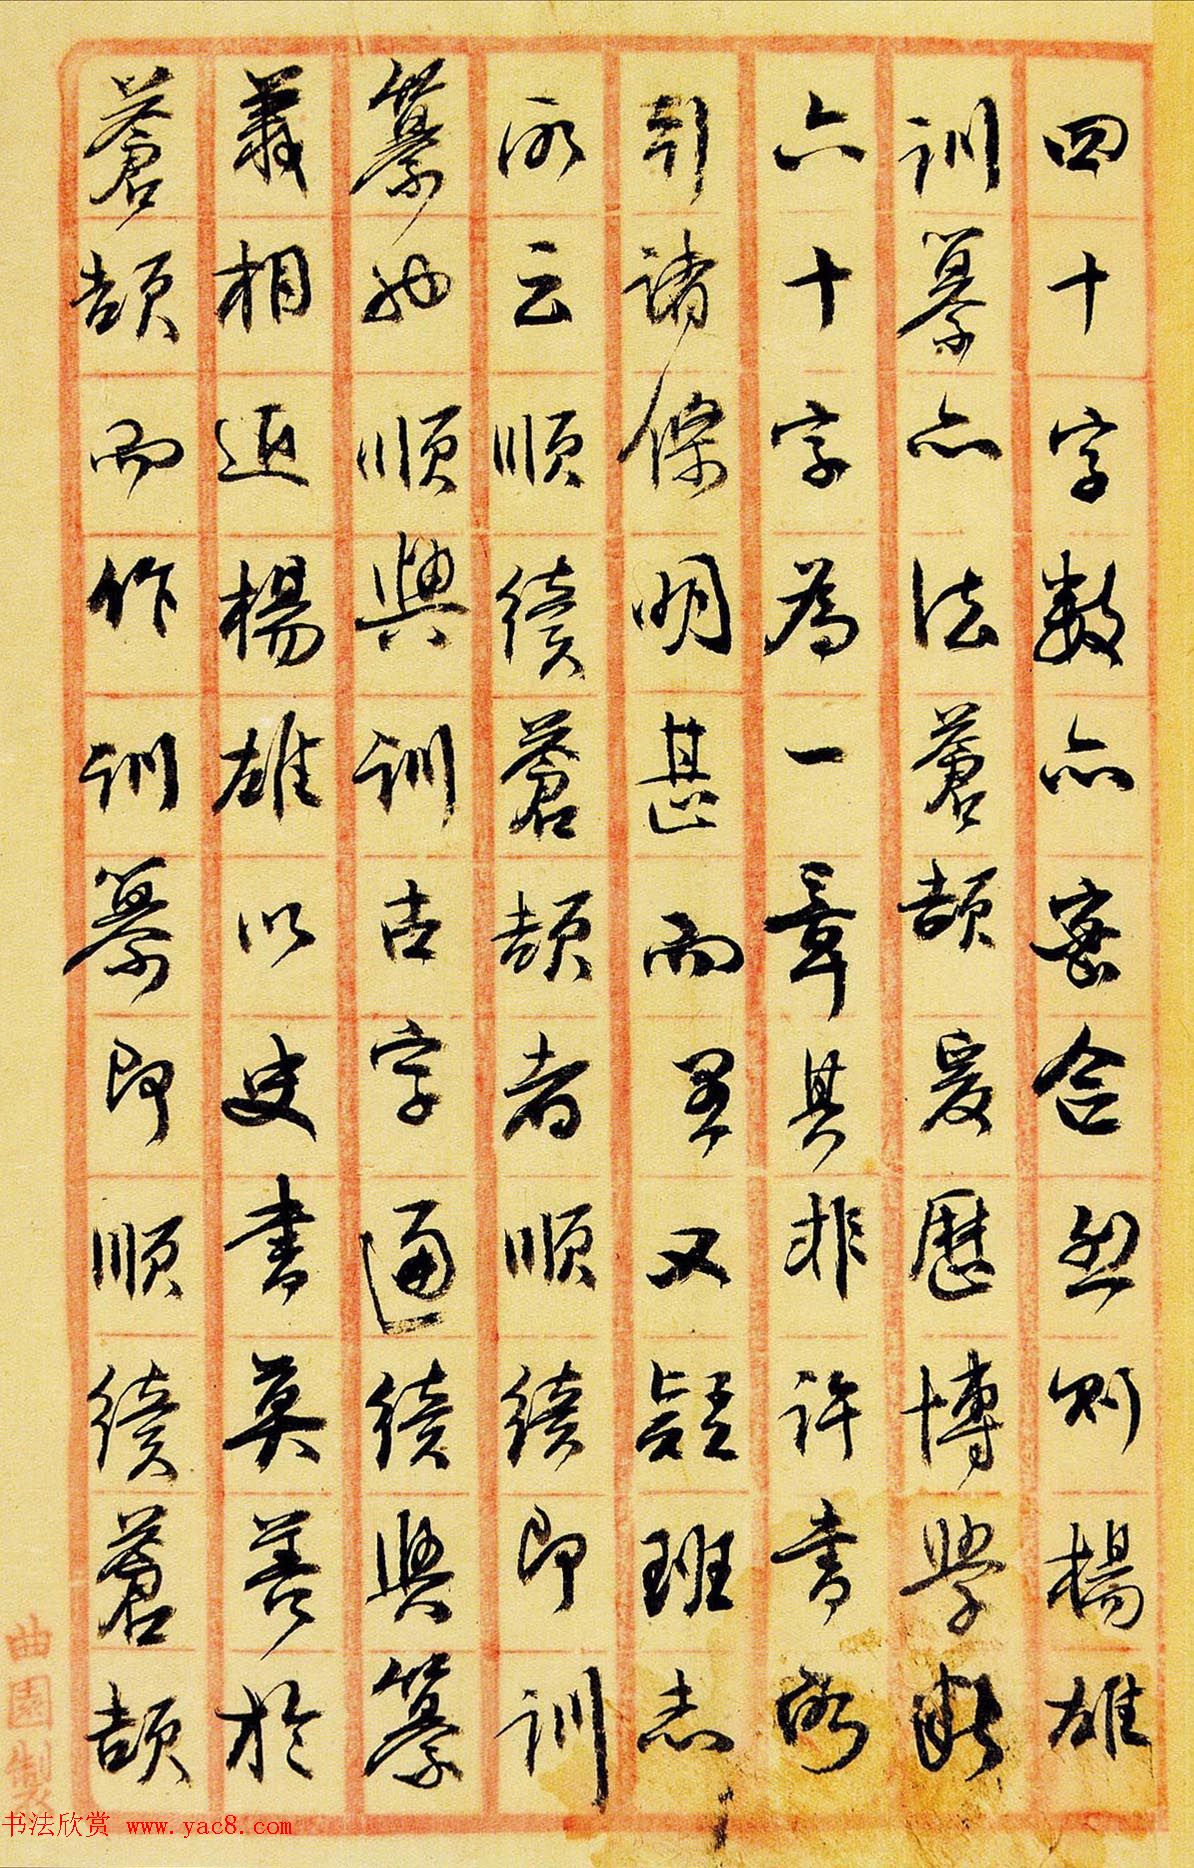 四十字數亦密合然則楊雄
訓纂亦法蒼頡爰歷博學斷
六十字為一章其非許書所
引諸條明甚而又疑班志
所云順續蒼頡者順續即訓
纂也順與訓古字通續與纂
義相近楊雄以史書莫善於
蒼頡而作訓纂即順續蒼頡
曲園製
书法欣赏 www.yac8.com